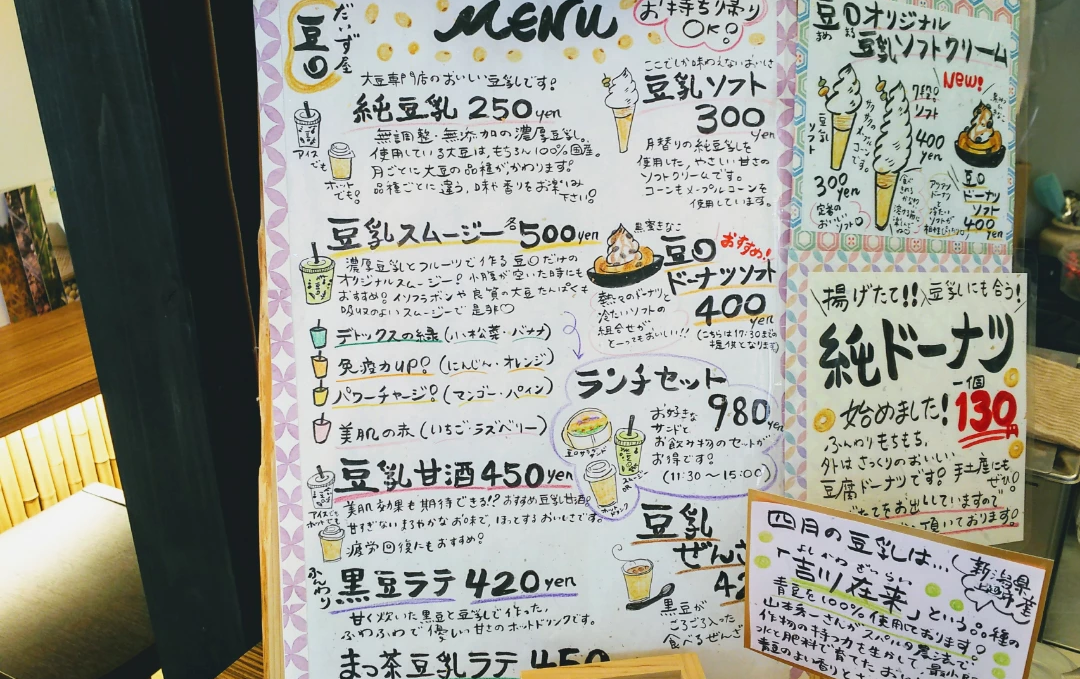 だいず屋
豆〇
MENU
お持ち帰り
OK!
大豆専門店のおいしい豆乳です。
純豆乳 250yen
無調整・無添加の濃厚豆乳。
使用している大豆は、もちろん100%国産。
月ごとに大豆の品種がかわります。
品種ごとに違う、味や香りをお楽しみ
下さい。
アイス
でも
ホット
でも。
豆乳スムージー 各500yen
濃厚豆乳とフルーツで作る豆〇だけの
オリジナルスムージー!小腹が空いた時にも
おすすめ。イソフラボンや良質の大豆たんぱくも
吸収のよいスムージーで是非〇
デトックスの緑(小松菜・バナナ)
免疫力UP!(にんじん・オレンジ)
パワーチャージ!(マンゴー・パイン)
美肌の赤(いちご・ラズベリー)
豆乳甘酒 450yen
美肌効果も期待できる!?おすすめ豆乳甘酒。
甘すぎないまろやかなお味で、ほっとするおいしさです。
疲労回復にもおすすめ。
アイスでも
ホットでも
ふんわり
黒豆ラテ 420yen
甘く炊いた黒豆と豆乳で作った、
ふわふわで優しい甘さのホットドリンクです。
まっ茶豆乳ラテ 450
ここでしか味わえないおいしさ
豆乳ソフト
300yen
月替りの純豆乳を
使用した、やさしい甘さの
ソフトクリームです。
コーンもメープルコーンを
使用しています。
黒蜜きなこ
豆〇
おすすめ!
ドーナツソフト
400yen
熱々のドーナツと
冷たいソフトの
組合せが
とってもおいしい!!
(こちらは17:30までの
提供となります)
ランチセット
980yen
お好きな
サンドと
お飲み物のセットが
お得です。
(11:30~15:00)
スムージー
ホットドリンク
豆乳
ぜんざ
42
黒豆が
ごろごろ入った
食べるぜんざ
豆〇オリジナル
まめ まる
豆乳ソフトクリーム
New!
豆乳
ソフト
300yen
定番の
おいしいソフト。
ソフト
400
yen
豆〇
ドーナツ
ソフト
400yen
アツアツ
ドーナツ
冷たい
ソフトの
揚げたて!!豆乳にも合う!
純ドーナツ
一個
130円
始めました!
ふんわりもちもち、
外はさっくりのおいしい
豆腐ドーナツです。手土産にも
ぜひ。
たてをお出ししていますので
頂いております。
四月の豆乳は...
新潟県産
よしかわ ざいらい
「吉川在来」という品種の
青豆を100%使用しております。
山本秀一さんがスパルタ農法で
作物の持つ力を生かして、最小限
水と肥料で育てた
青豆のよい香りと